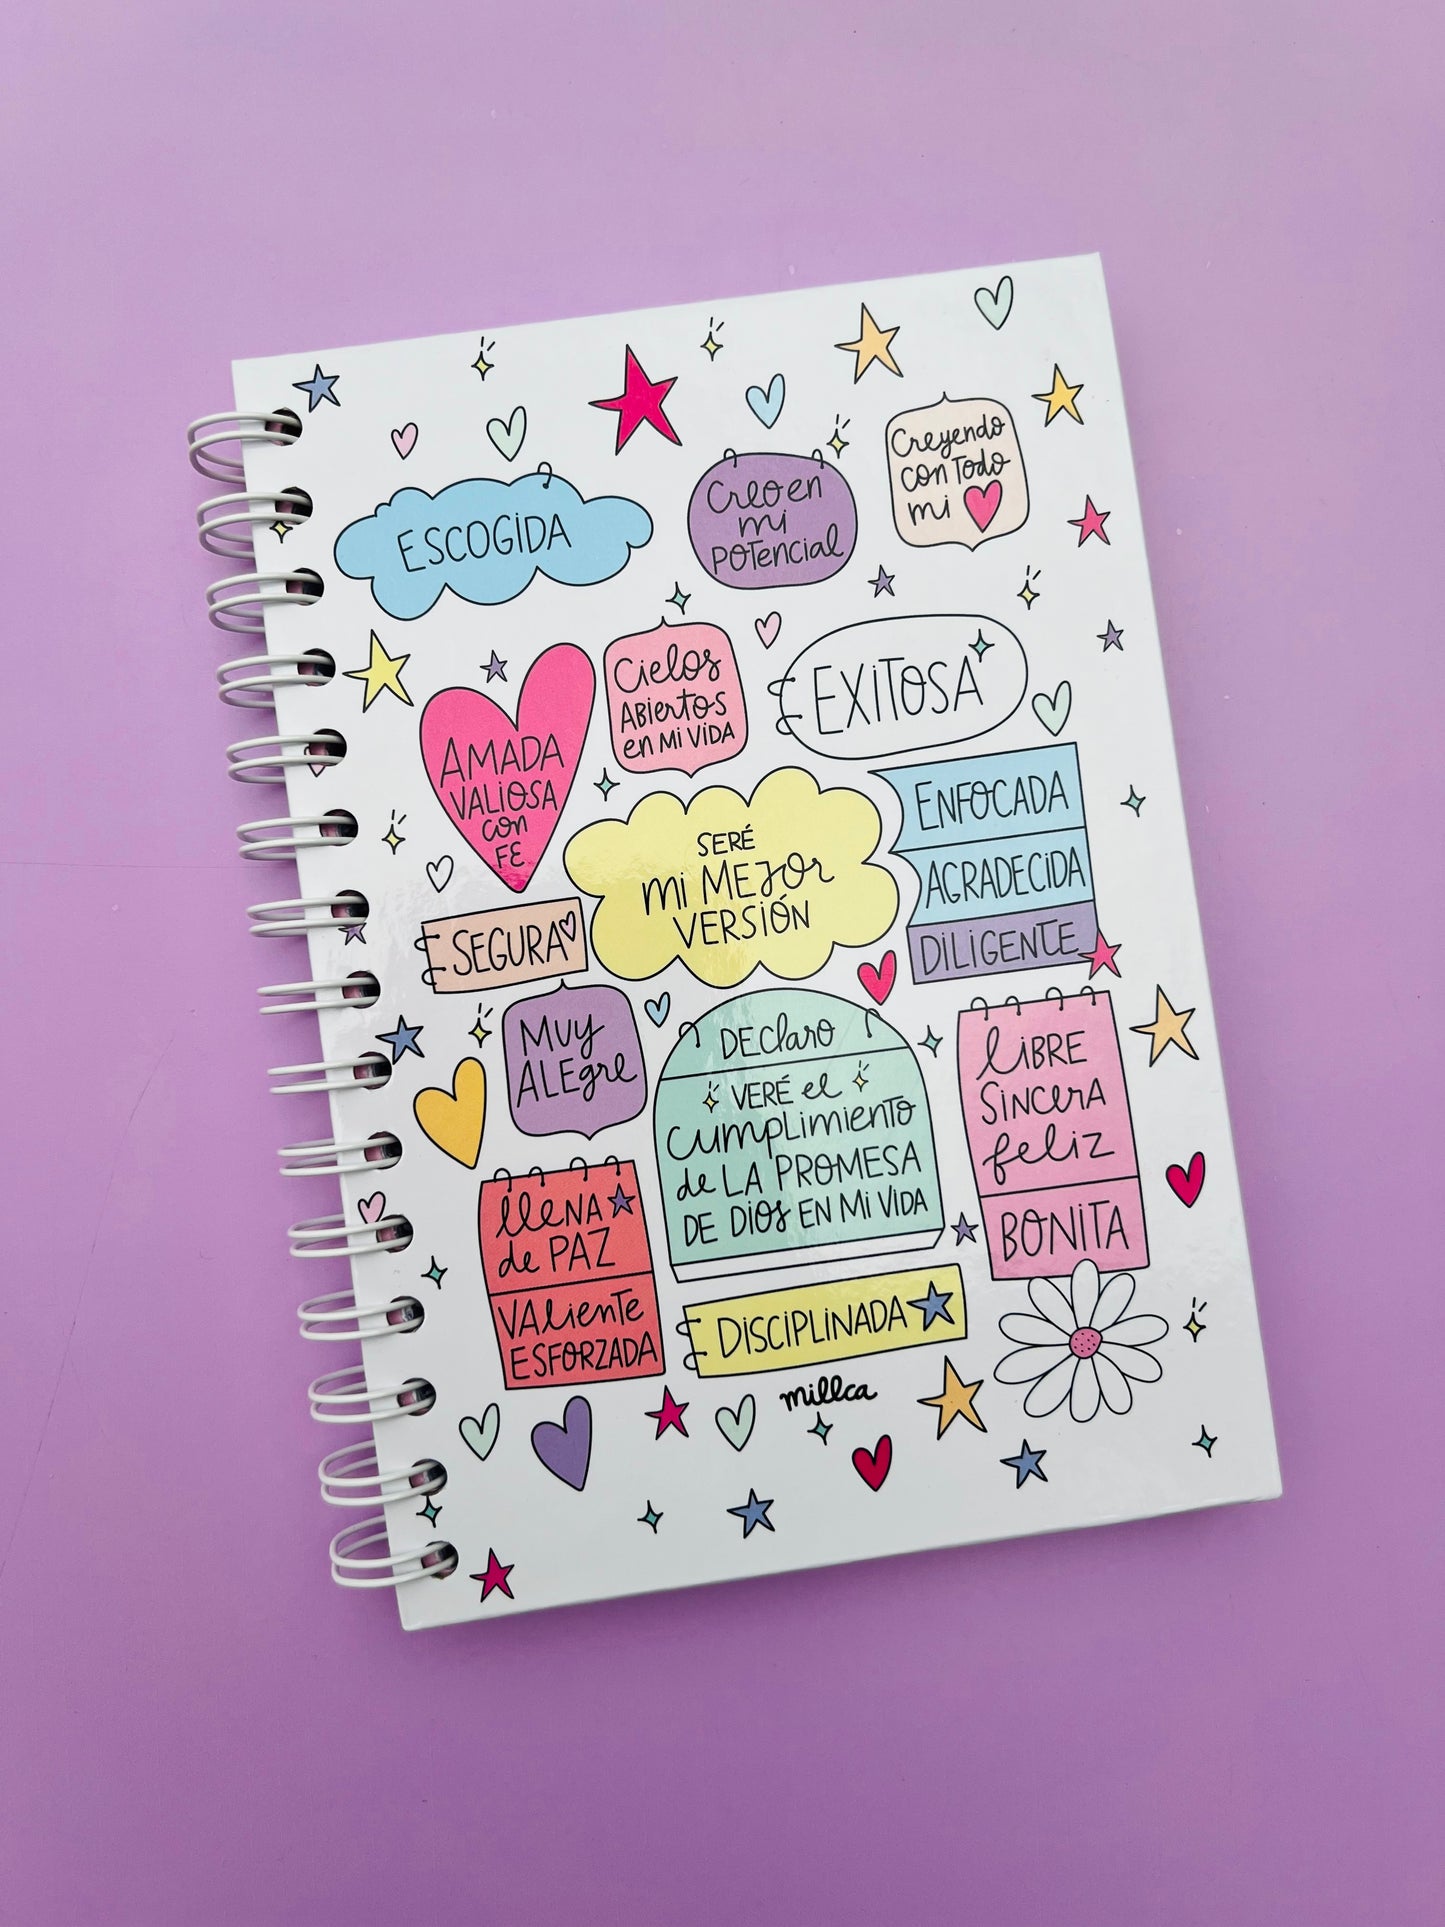 ESCOGIDA
Creo en
mi
POTencial
Creyendo
con Todo
mi
AMADA
VALIOSA
con
FE
Cielos
ABiertos
en Mi ViDA
EXiTOSA
SERÉ
mi MEJOr
VERSIÓN
ENFOCADA
AGRADECiDA
DiLiGENTE
SEGURA
MUy
ALEgre
DEClaro
VERÉ el
cumpLimienTo
de LA PROMESA
DE DiOs EN Mi ViDA
LiBRE
SincerA
feliz
BONiTA
lleNA
de PAZ
VAlienTe
ESFORZADA
DiSCiPLiNADA
millca